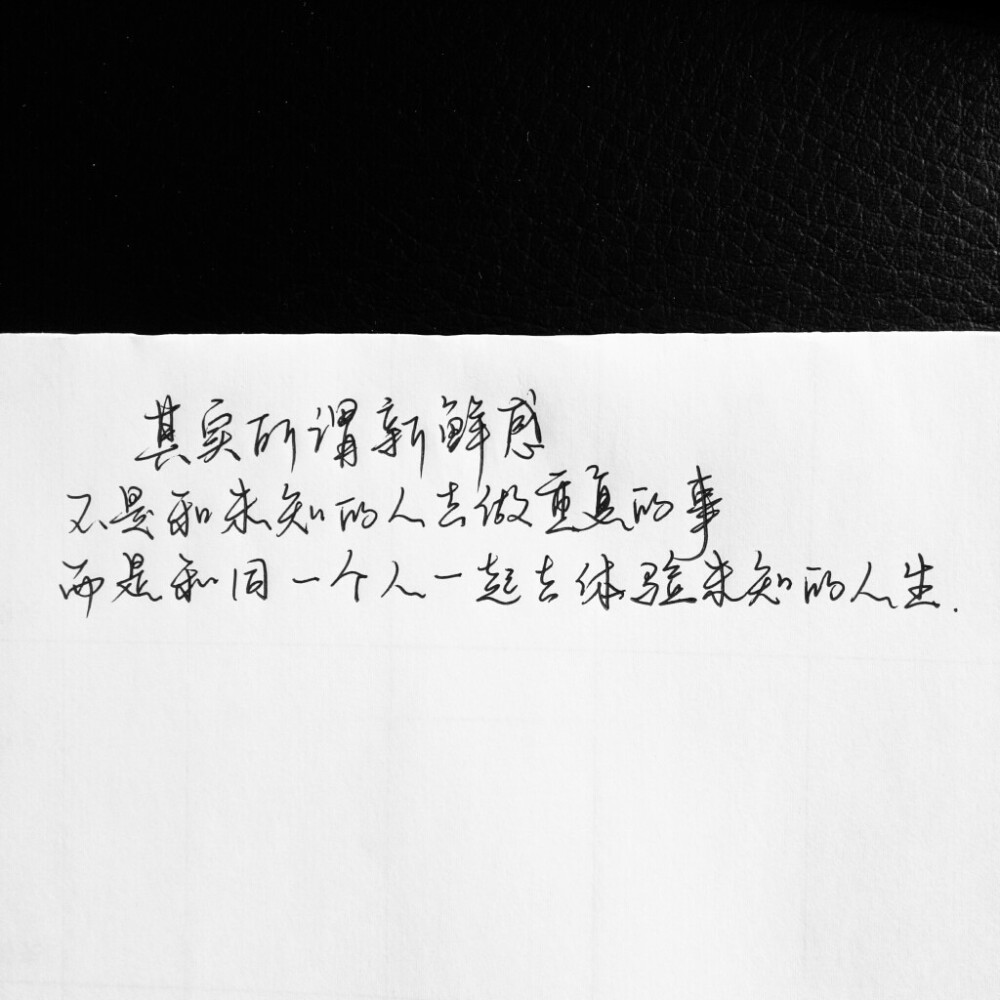 其实所谓新鲜感
不是和未知的人去做重复的事
而是和同一个人一起去体验未知的人生.